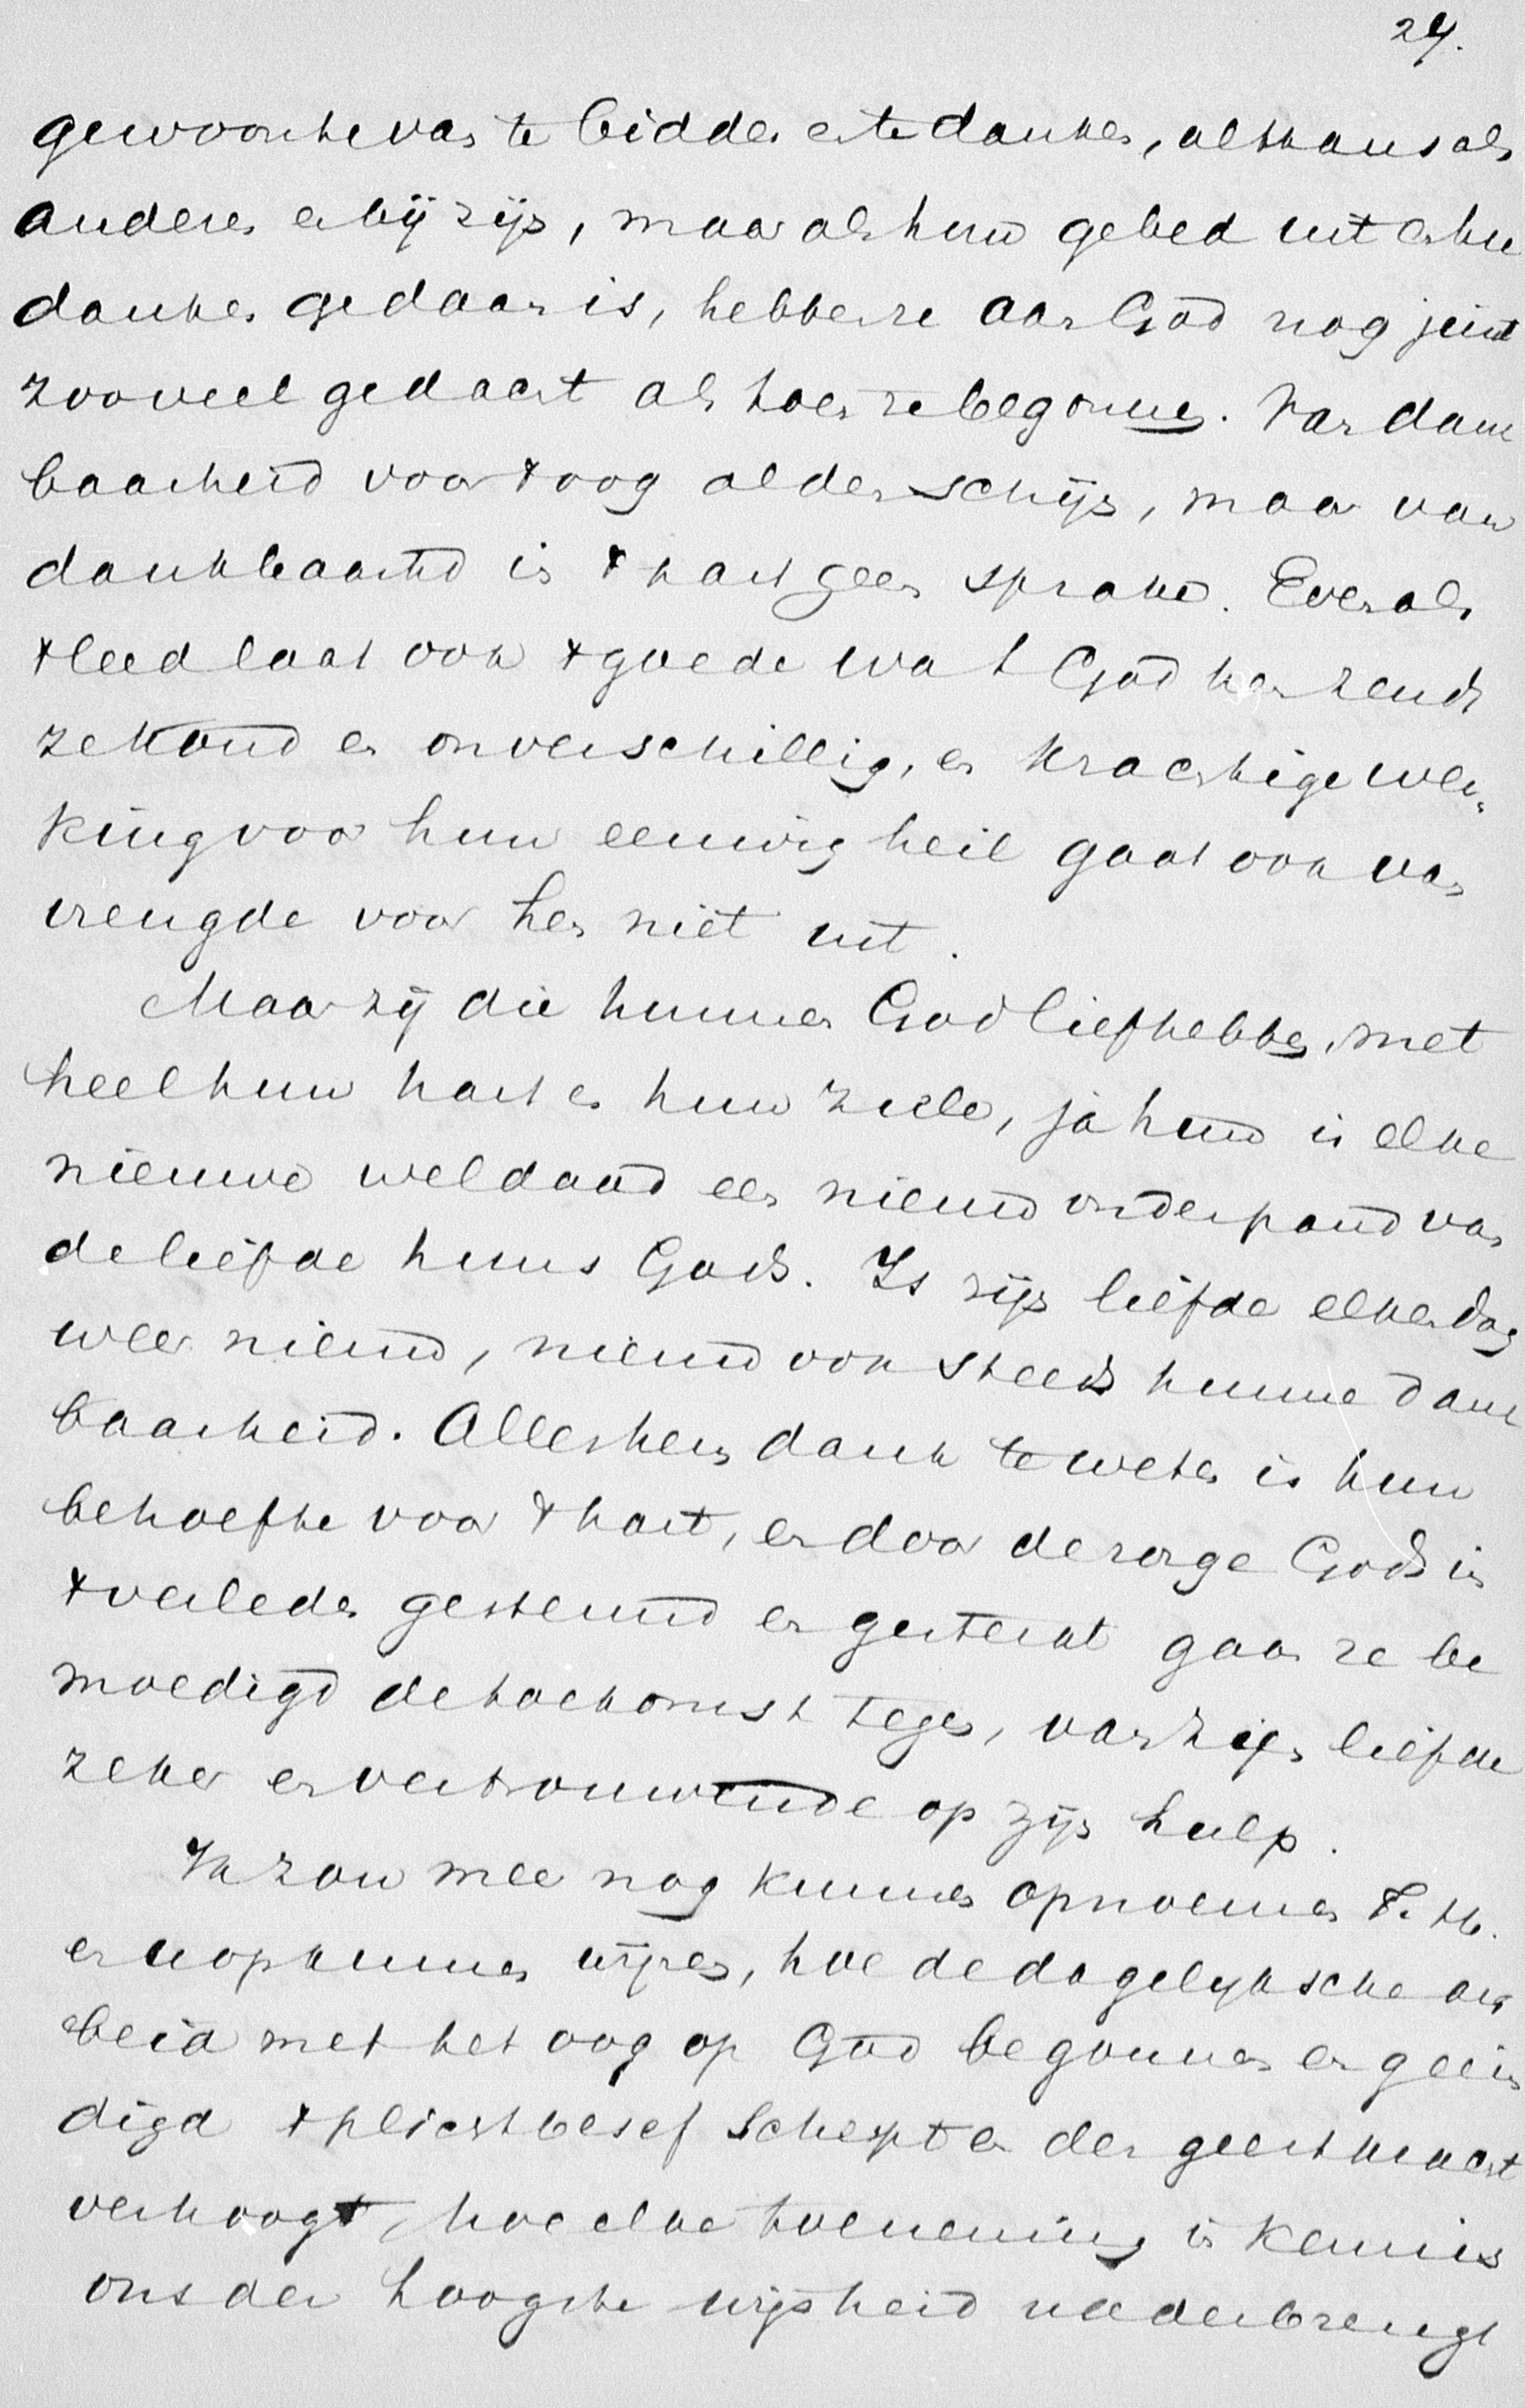 24.
gewoonte van te bidden en te danken, althans als
anderen er bij zijn, maar als hun gebed uit en hun
danken gedaan is, hebben ze aan God nog juist
zooveel gedacht als toen ze begonnen. Van dank
baarheid voor 't oog al den schijn, maar van
dankbaarheid in 't hart geen sprake. Evenals
't leed laat ook 't goede wat God hen zendt
ze koud en onverschillig, en krachtige wer„
king voor hun eeuwig heil gaat ook van
vreugde voor hen niet uit.
Maar zij die hunnen God liefhebben, met
heel hun hart en hun ziele, ja hun is elke
nieuwe weldaad een nieuw onderpand van
de liefde huns Gods. Is zijn liefde elken dag
weer nieuw, nieuw ook steeds hunne dank
baarheid. Allen hem dank te weten is hun
behoefte voor 't hart, en door de zorge Gods in
't verleden gesteund en gesterkt gaan ze be
moedigd de toekomst tegen, van zijn liefde
zeker en vertrouwende op zijn hulp.
Ik zou mee nog kunnen opnoemen T. H.
er u op kunnen wijzen, hoe de dagelijksche ar
beid met het oog op God begonnen en geëin
digd 't plichtbesef scherpt en den geestkracht
verhoogt, hoe elke toeneming in kennis
ons der hoogste wijsheid nader brengt